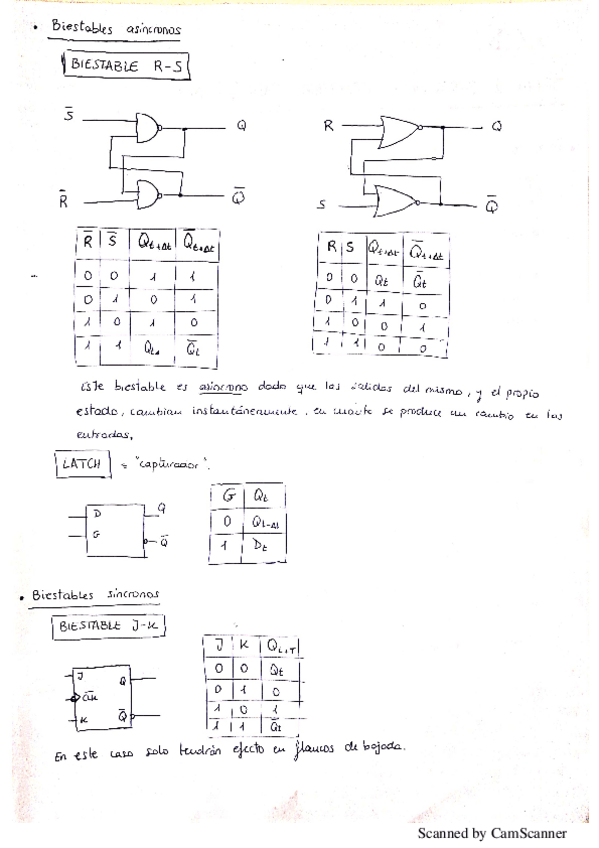 • Biestables asíncronos
BIESTABLE R-S
S̅ Q R Q
R̅ Q̅ S Q̅
R̅ S̅ Qt+Δt Q̅t+Δt
0 0 1 1
0 1 0 1
1 0 1 0
1 1 Qt Q̅t
R S Qt+Δt Q̅t+Δt
0 0 Qt Q̅t
0 1 1 0
1 0 0 1
1 1 0 0
Este biestable es asíncrono dado que las salidas del mismo, y el propio
estado, cambian instantáneamente, en cuanto se produce un cambio en las
entradas.
LATCH = "capturador".
D Q
G Q̅
G Qt
0 Qt-Δt
1 Dt
• Biestables síncronos
BIESTABLE J-K
J Q
C̅l̅k̅
K Q̅
J K Qt+T
0 0 Qt
0 1 0
1 0 1
1 1 Q̅t
En este caso solo tendrán efecto en flancos de bajada.
Scanned by CamScanner